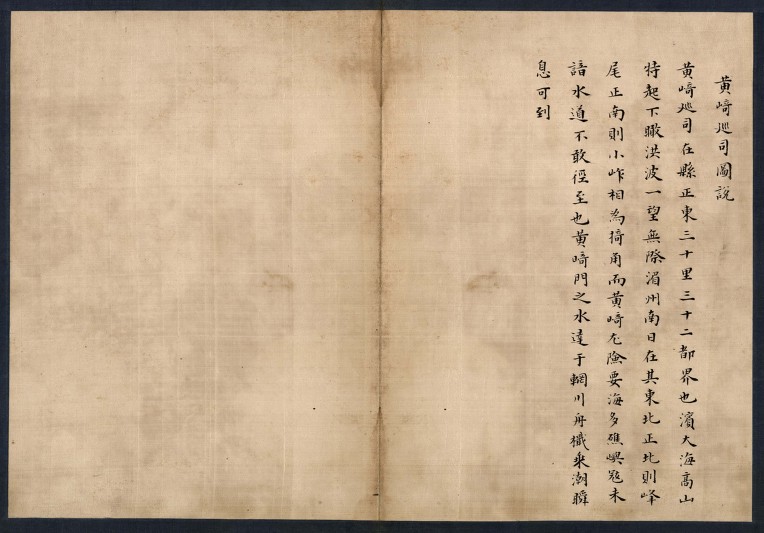 黄崎廵司圖說
黄崎廵司在縣正東三十里三十二都界也濱大海高山
特起下瞰洪波一望無際湄州南日在其東北正北則峰
尾正南則小岞相為掎角而黄崎尤險要海多礁嶼寇未
諳水道不敢徑至也黄崎門之水達于輞川舟檝乘潮瞬
息可到